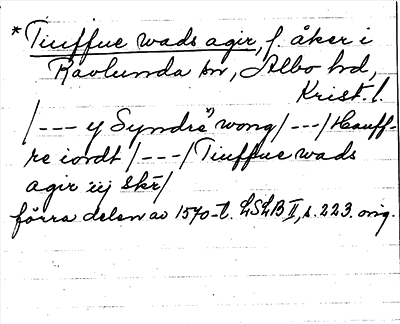 *Tiuffue wads agir, f. åker i
Ravlunda sn, Albo hd,
Krist. l.
/--- y Syndrè") wong/---/Hauff-
re iordt/---/Tiuffue wads
agir iij skr/
förra delen av 1570-t. LSLB II, s. 223. orig.